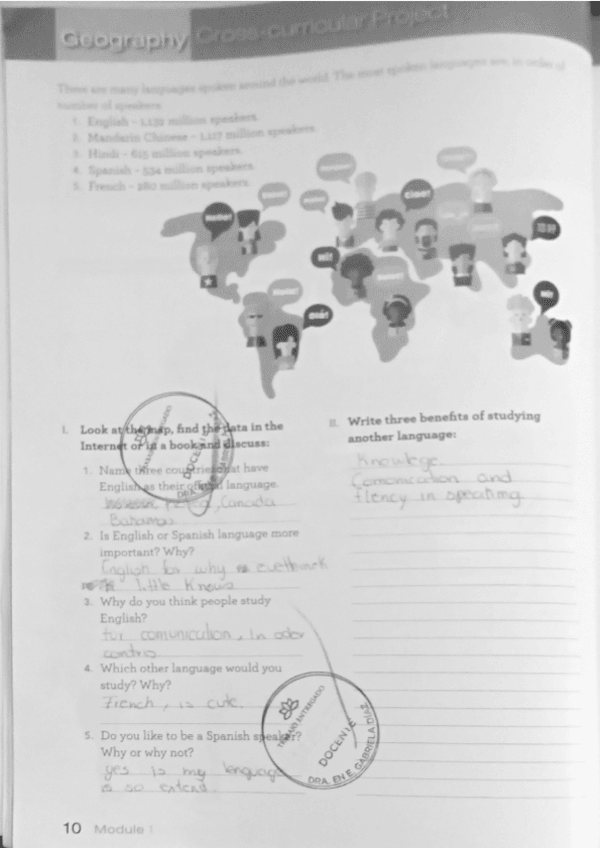 Geography Cross-curricular Project
There are many languages spoken around the world. The most spoken languages are, in order of
number of speakers:
1. English – 1,132 million speakers.
2. Mandarin Chinese – 1,117 million speakers.
3. Hindi – 615 million speakers.
4. Spanish – 534 million speakers.
5. French – 280 million speakers.
Ciao!
Olá!
I. Look at the map, find the data in the
Internet or in a book and discuss:
1. Name three countries that have
English as their official language.
, Canada
Bahamas
2. Is English or Spanish language more
important? Why?
English for why
little Knows
3. Why do you think people study
English?
for comunication, In oder
4. Which other language would you
study? Why?
French, is cute.
5. Do you like to be a Spanish speaker?
Why or why not?
yes is my language
is so extend.
II. Write three benefits of studying
another language:
Knowlege.
Comonication and
flency in speating
TRABAJO ENTREGADO
DOCENTE
DRA. EN E. GABRIELA DIAZ
10 Module 1